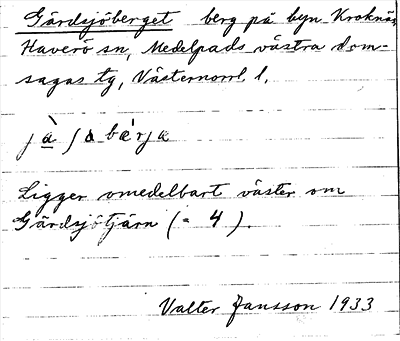 Gärdsjöberget berg på byn Kroknäs,
Haverö sn, Medelpads västra dom-
sagas tg, Västernorrl. l.
Ligger omedelbart väster om
Gärdsjötjärn (= 4).
Valter Jansson 1933